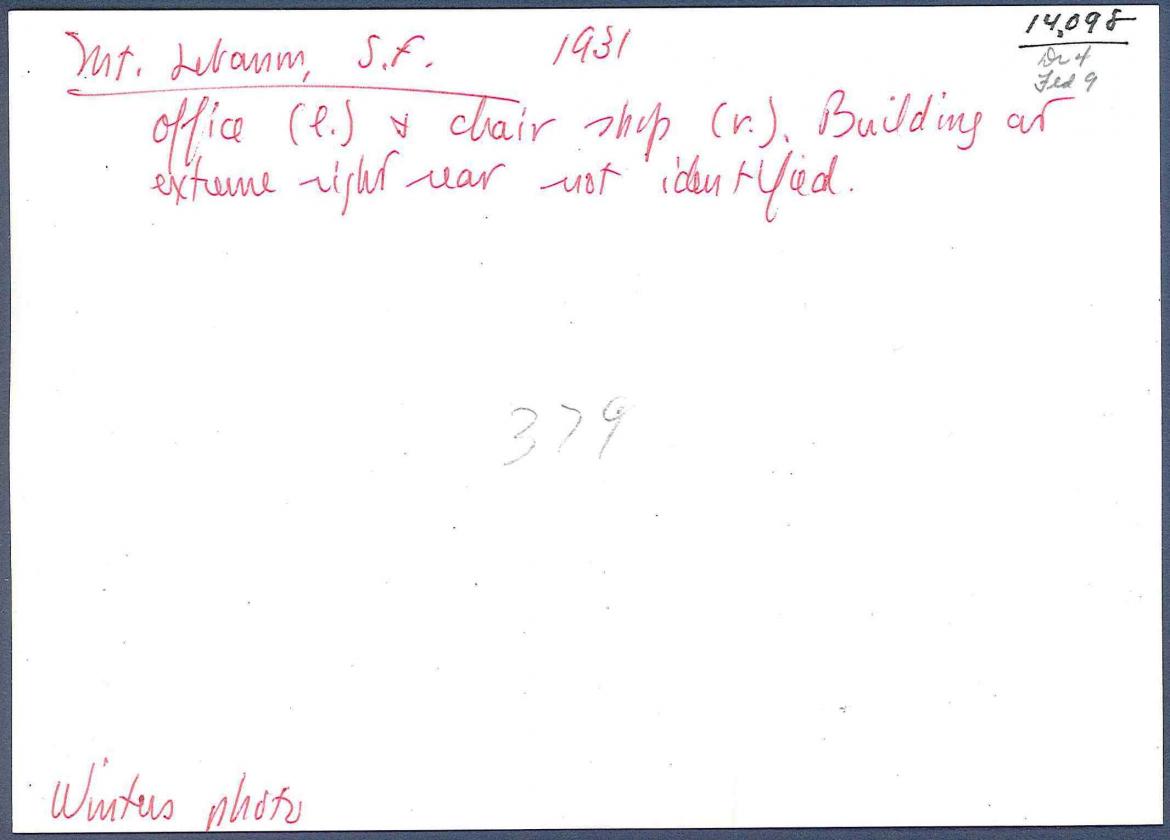 14,098
Dr 4
Fld 9
Mt. Lebanon, S.F. 1931
office (l.) & chair shop (r.). Building at
extreme right rear not identified.
379
Winters photo